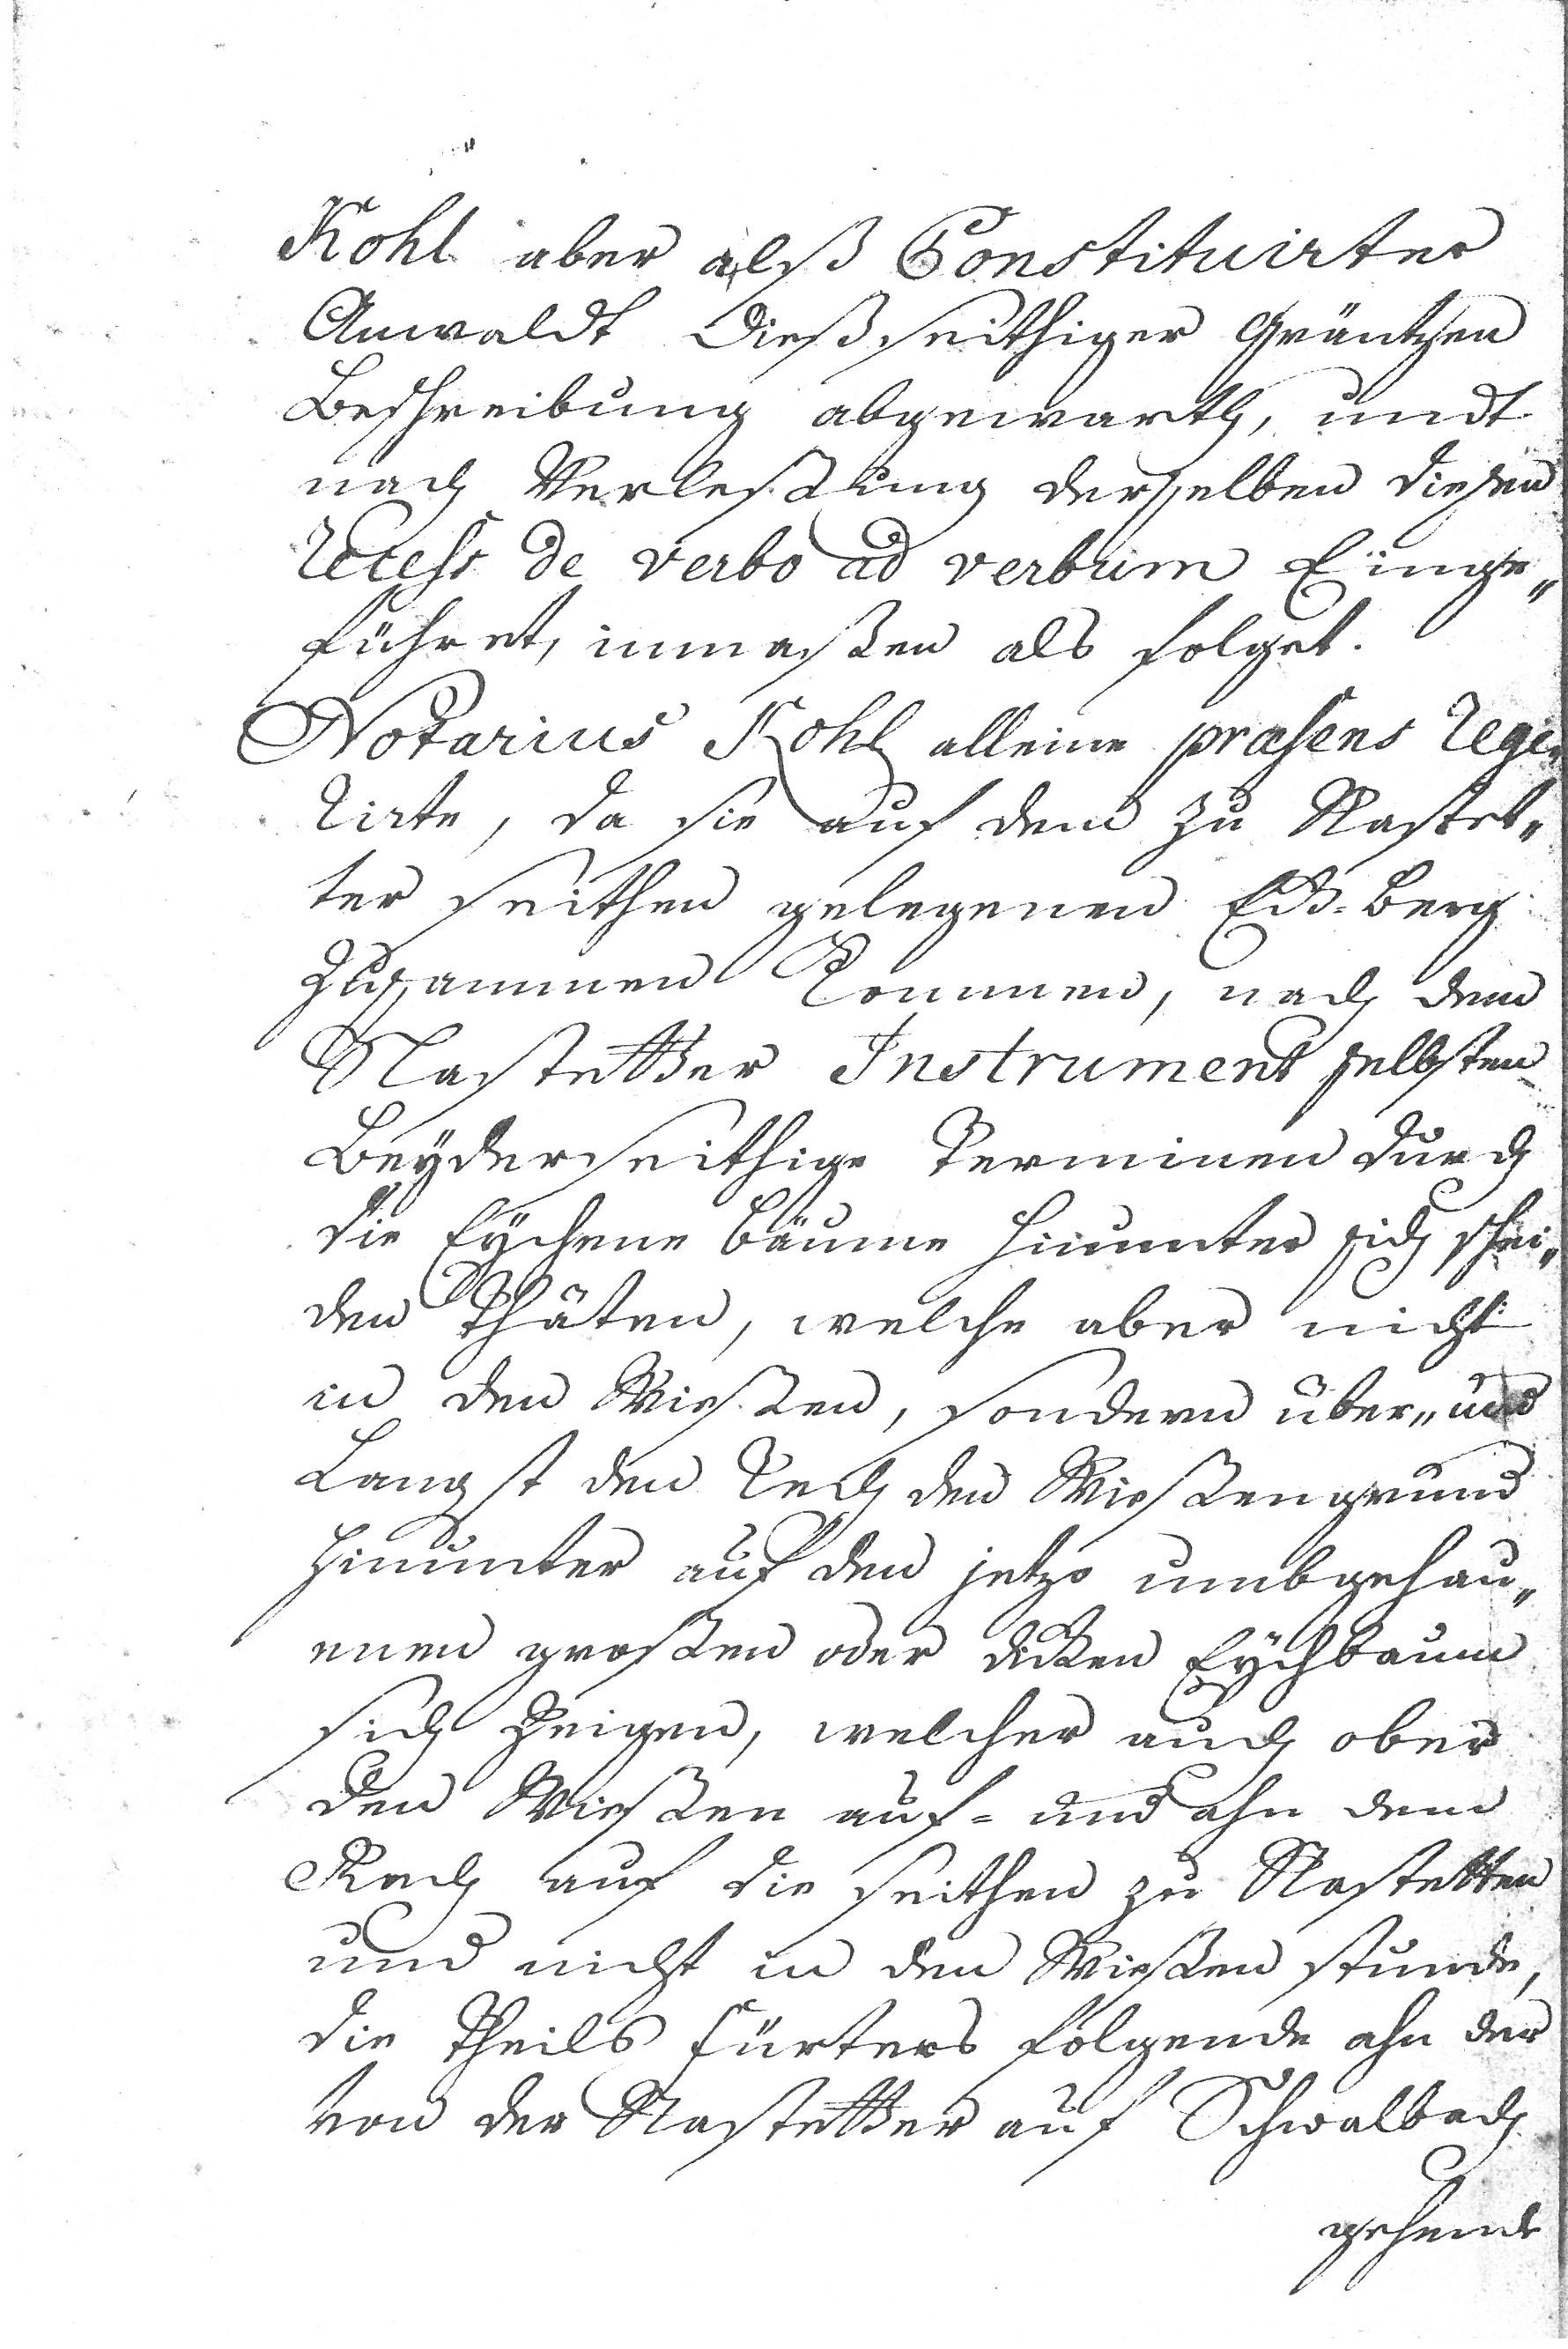 Kohl aber alß Constituirter
Anwaldt dießseithiger Gräntzen
Beschreibung abgewarth, undt
nach Verleßung derselben diesen
Recess de verbo ad verbum Einge„
führet, inmaßen als folget.
Notarius Kohl alleine præsens rege„
rirte, da sie auf dem zu Nastet„
ter seithen gelegenen Berg
zusammen kommen, nach dem
Nastetter Instrument selbsten
Beyderseithige Terminen durch
die Eychene bäume hinunter sich schei„
den thäten, welche aber nicht
in den Wießen, sondern über„ und
Langst den Rech den Wießengrund
hinunter auf den jetzo umbgehau„
enen großen oder dicken Eychbaum
sich zeigen, welcher auch ober
den Wießen auf= und ahn dem
Rech auf die seithen zu Nastetten
und nicht in den Wießen stunde,
die theils fürters folgende ahn der
von der Nastetter auf Schwalbach
gehende